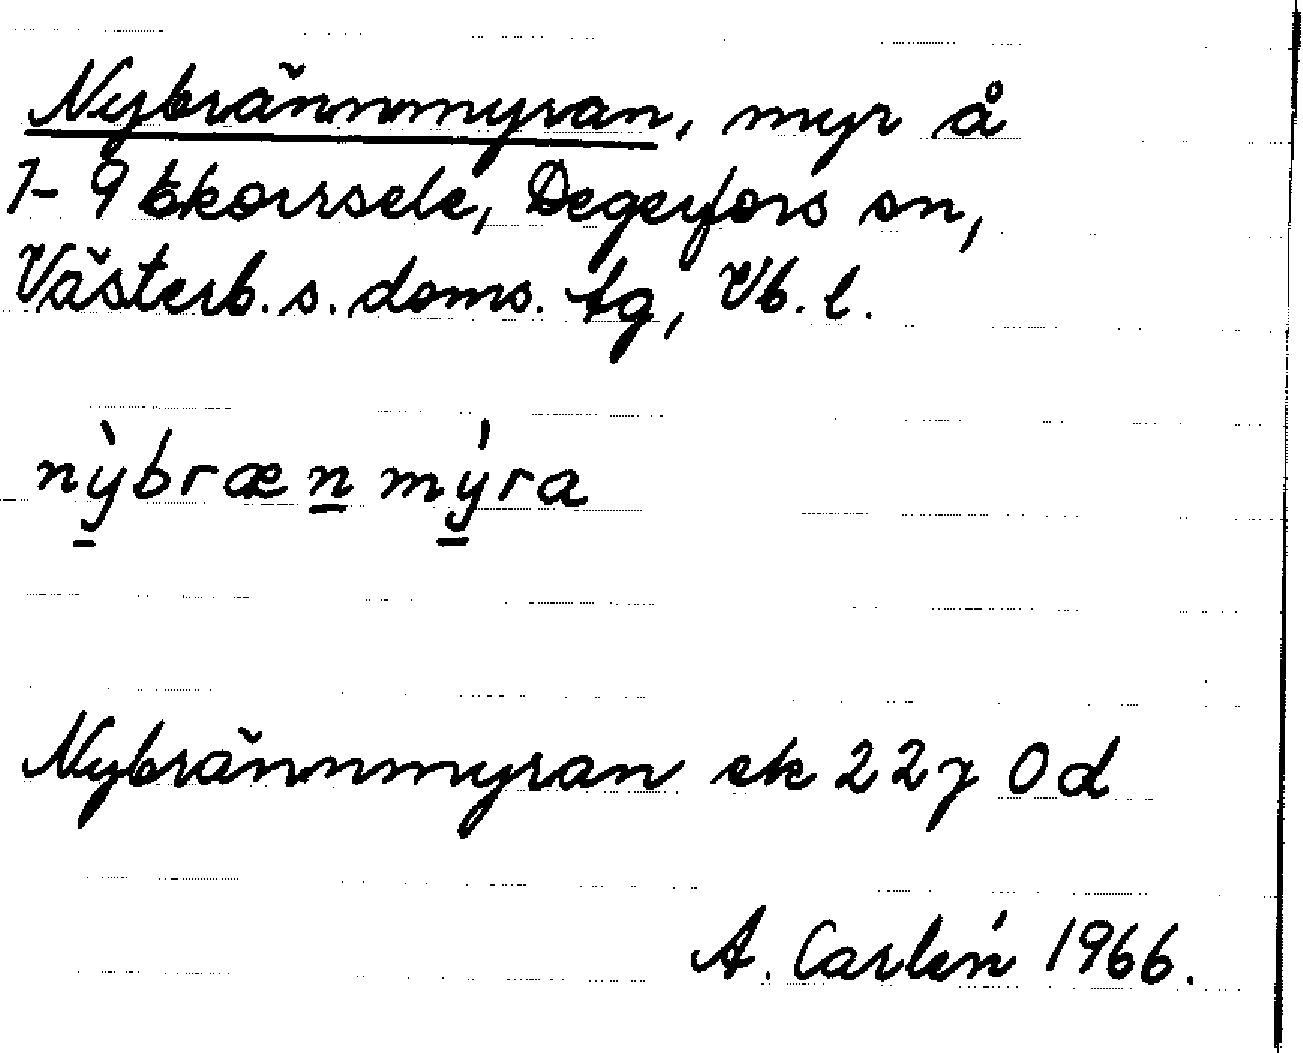 Nybrännmyran, myr å
1-9 Ekorrsele, Degerfors sn,
Västerb. s. doms. tg, Vb. l.
nỳbræn mýra
Nybrännmyran ek 22 j 0 d
A. Carlén 1966.